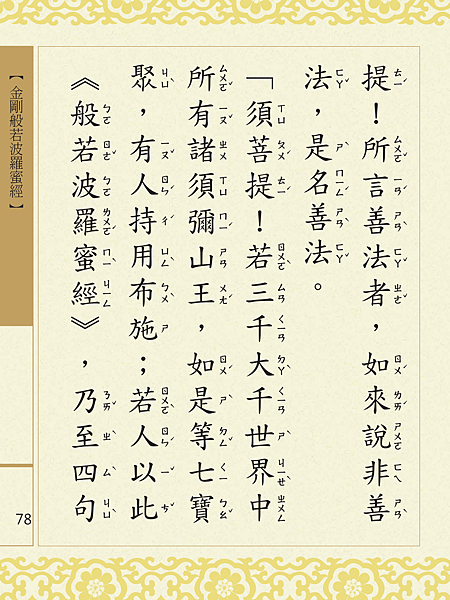 提！所言善法者，如來說非善
法，是名善法。
「須菩提！若三千大千世界中
所有諸須彌山王，如是等七寶
聚，有人持用布施；若人以此
《般若波羅蜜經》，乃至四句
【金剛般若波羅蜜經】
78